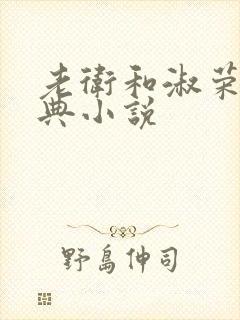 老衛和淑荣
典小説
野島伸司